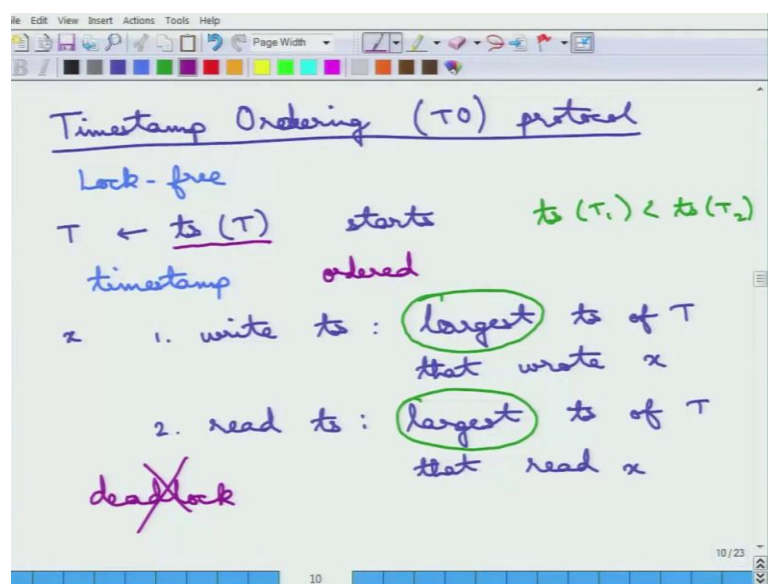 ile Edit View Insert Actions Tools Help
Page Width
B I
Timestamp Ordering (TO) protocol
Lock-free
T ← ts (T) starts ts (T₁) < ts (T₂)
timestamp ordered
x 1. write ts : largest ts of T
that wrote x
2. read ts : largest ts of T
that read x
deadlock
10/23
10